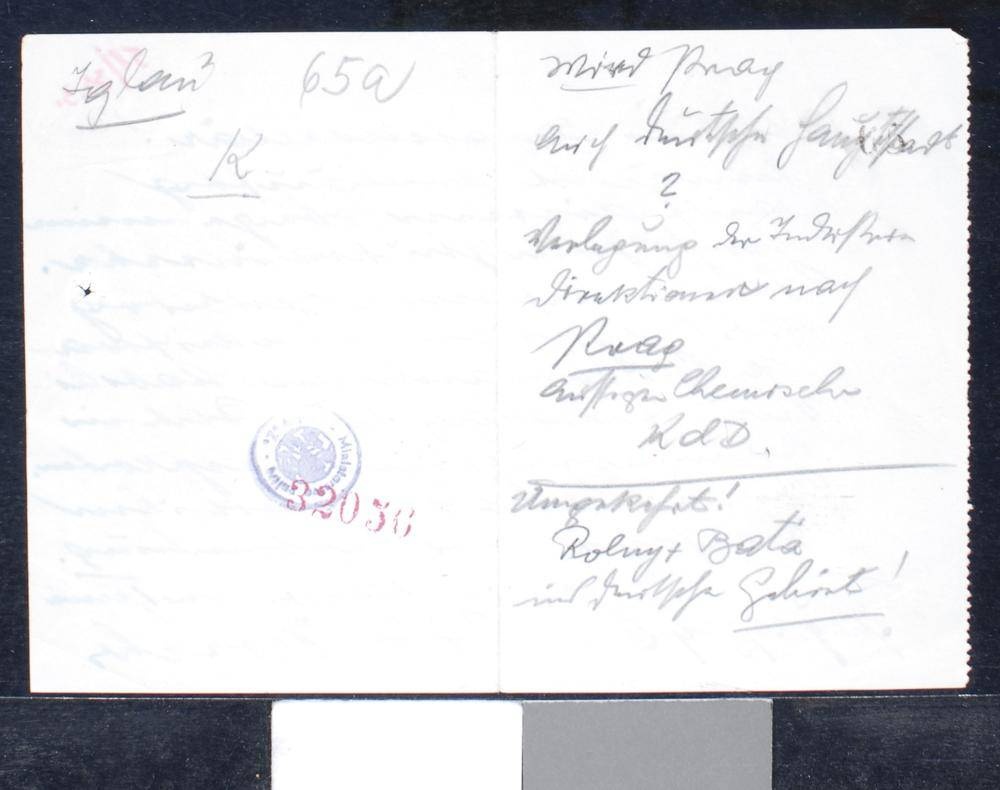 Iglau
65a
K
32056
Wird Prag
auch deutsche Hauptstadt
?
Verlegung der Industrie
direktionen nach
Prag
Aussiger Chemische
KdD.
Umgekehrt!
Rolny + Bata
ins deutsche Gebiet!